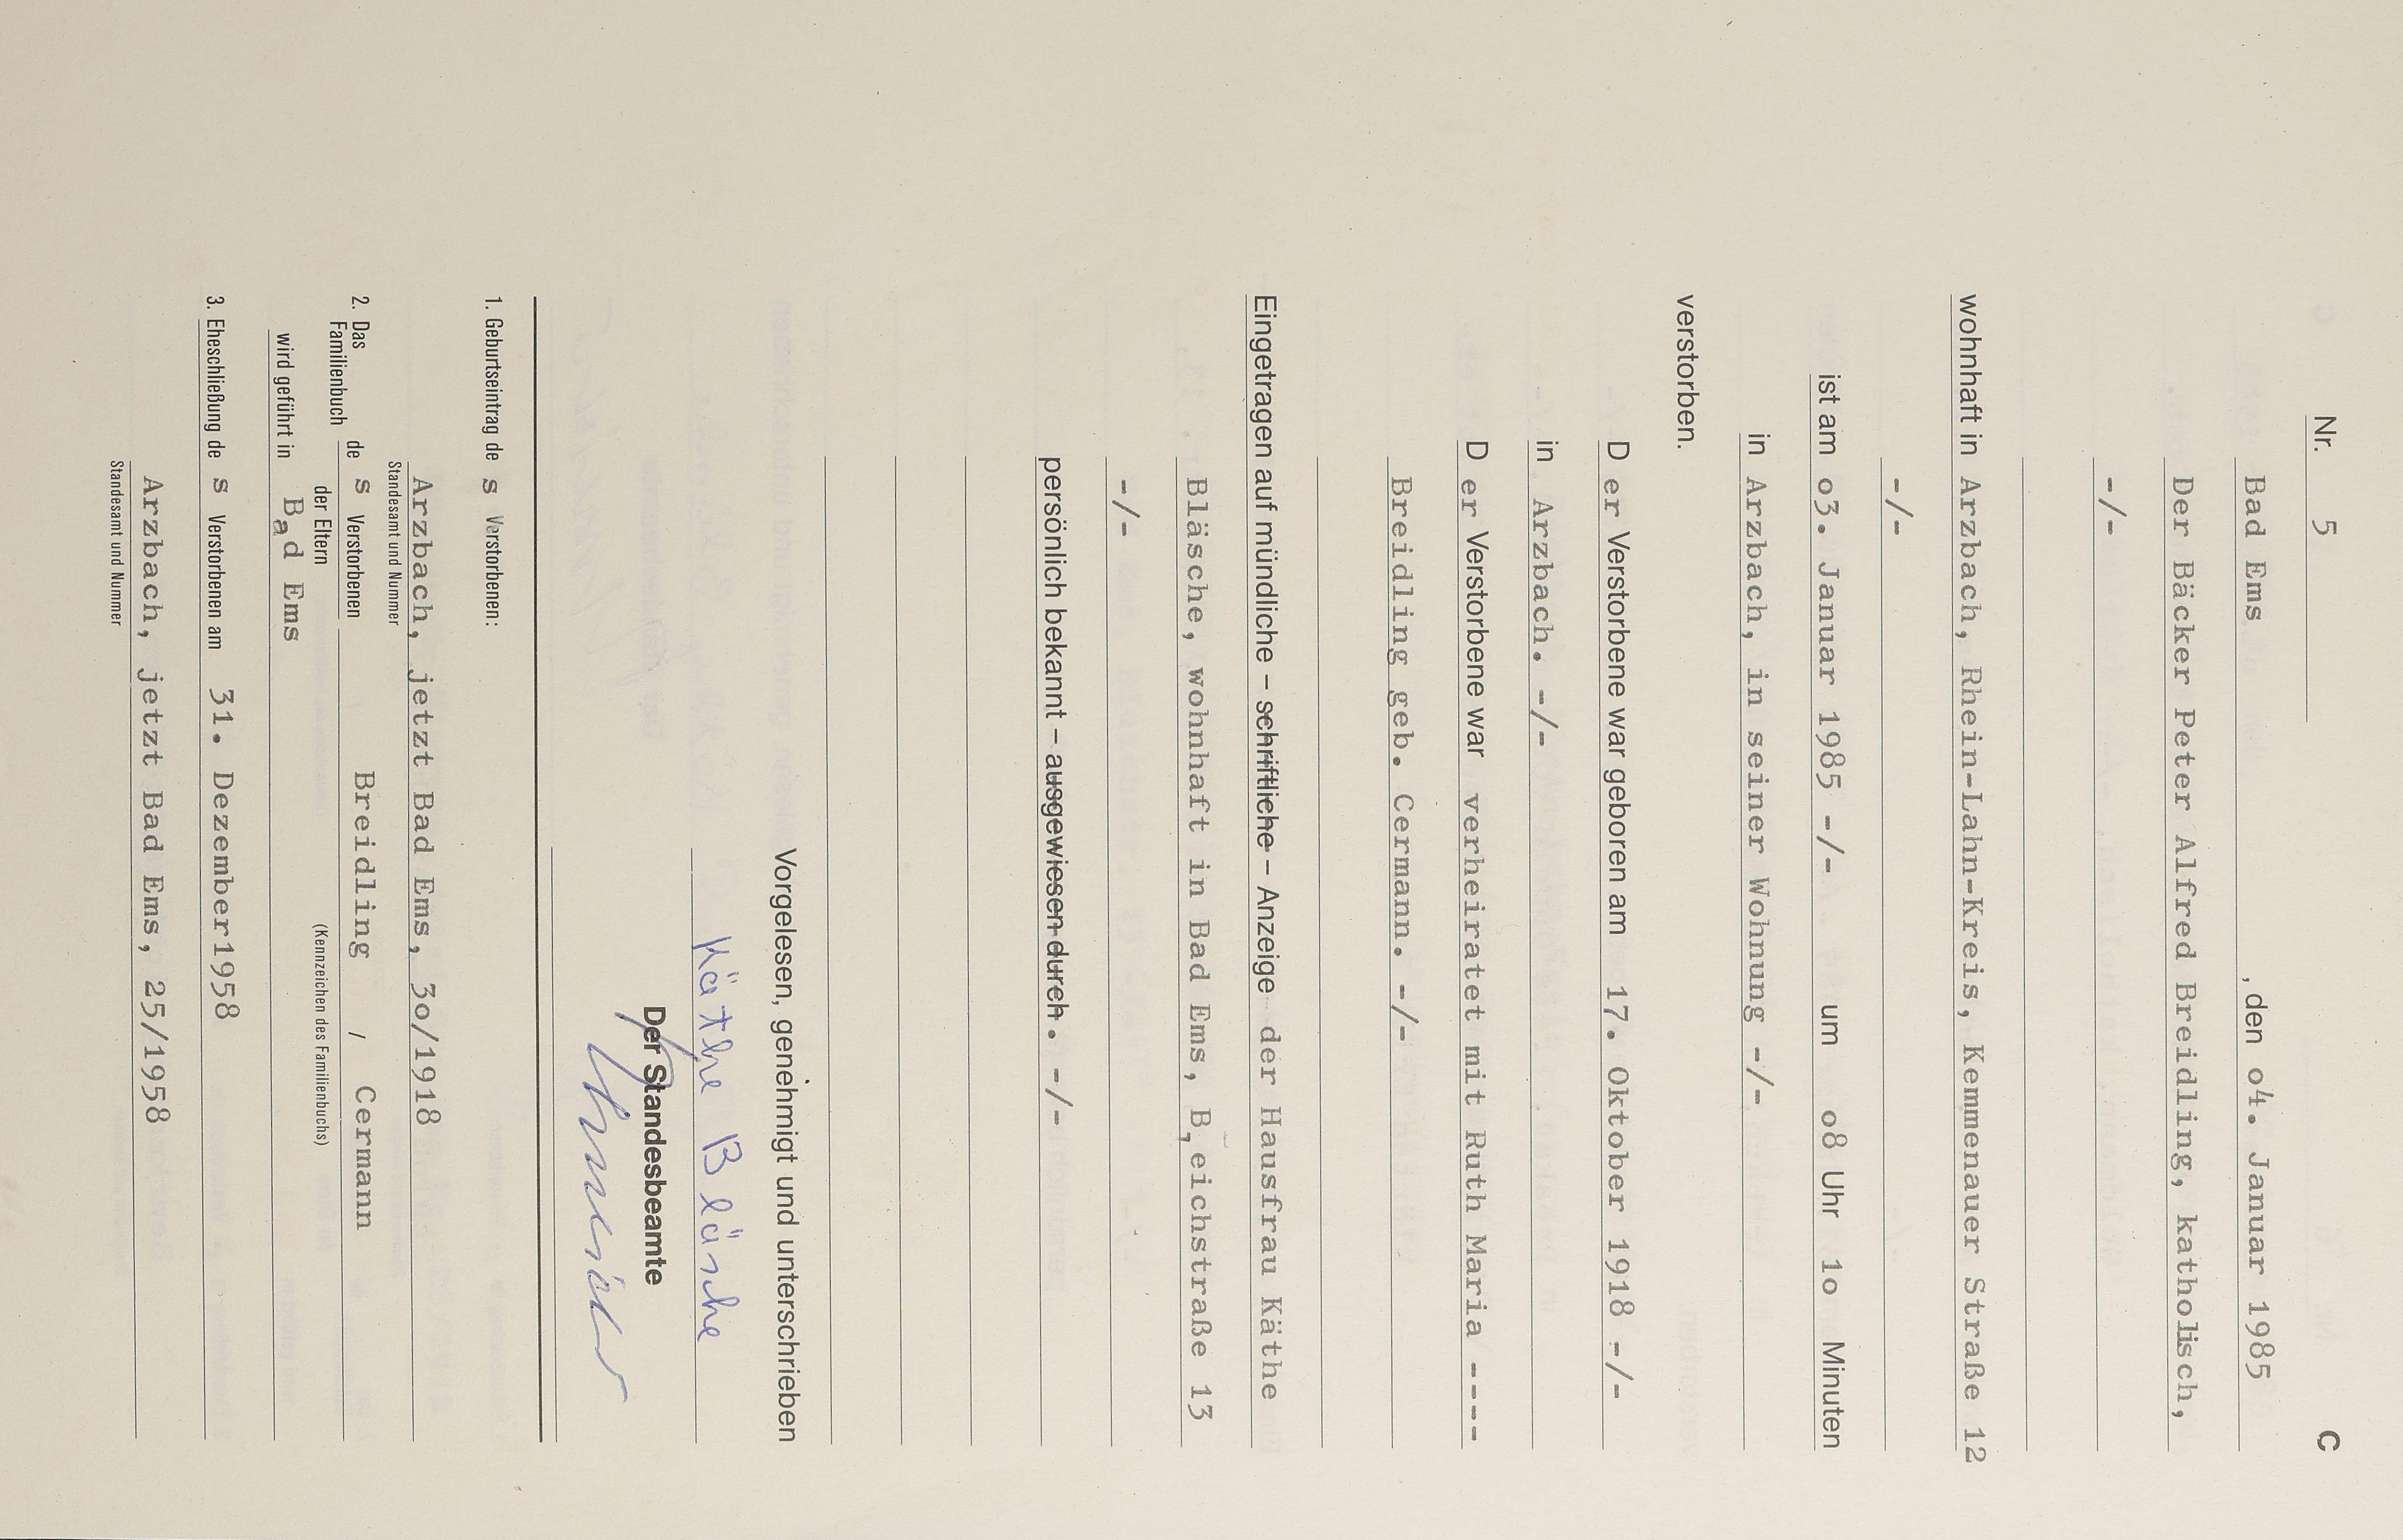 C
Nr. 5
Bad Ems , den o4. Januar 1985
Der Bäcker Peter Alfred Breidling, katholisch,
-/-
wohnhaft in Arzbach, Rhein-Lahn-Kreis, Kemmenauer Straße 12
-/-
ist am o3. Januar 1985 -/- um o8 Uhr 1o Minuten
in Arzbach, in seiner Wohnung -/-
verstorben.
D er Verstorbene war geboren am 17. Oktober 1918 -/-
in Arzbach. -/-
D er Verstorbene war verheiratet mit Ruth Maria ----
Breidling geb. Cermann. -/-
Eingetragen auf mündliche – schriftliche – Anzeige der Hausfrau Käthe
Bläsche, wohnhaft in Bad Ems, B,eichstraße 13
-/-
persönlich bekannt – ausgewiesen durch . -/-
Vorgelesen, genehmigt und unterschrieben
Käthe Bläsche
Der Standesbeamte
1. Geburtseintrag de s Verstorbenen:
Arzbach, jetzt Bad Ems, 3o/1918
Standesamt und Nummer
2. Das Familienbuch de s Verstorbenen Breidling / Cermann
der Eltern (Kennzeichen des Familienbuchs)
wird geführt in Bad Ems
3. Eheschließung de s Verstorbenen am 31. Dezember1958
Arzbach, jetzt Bad Ems, 25/1958
Standesamt und Nummer